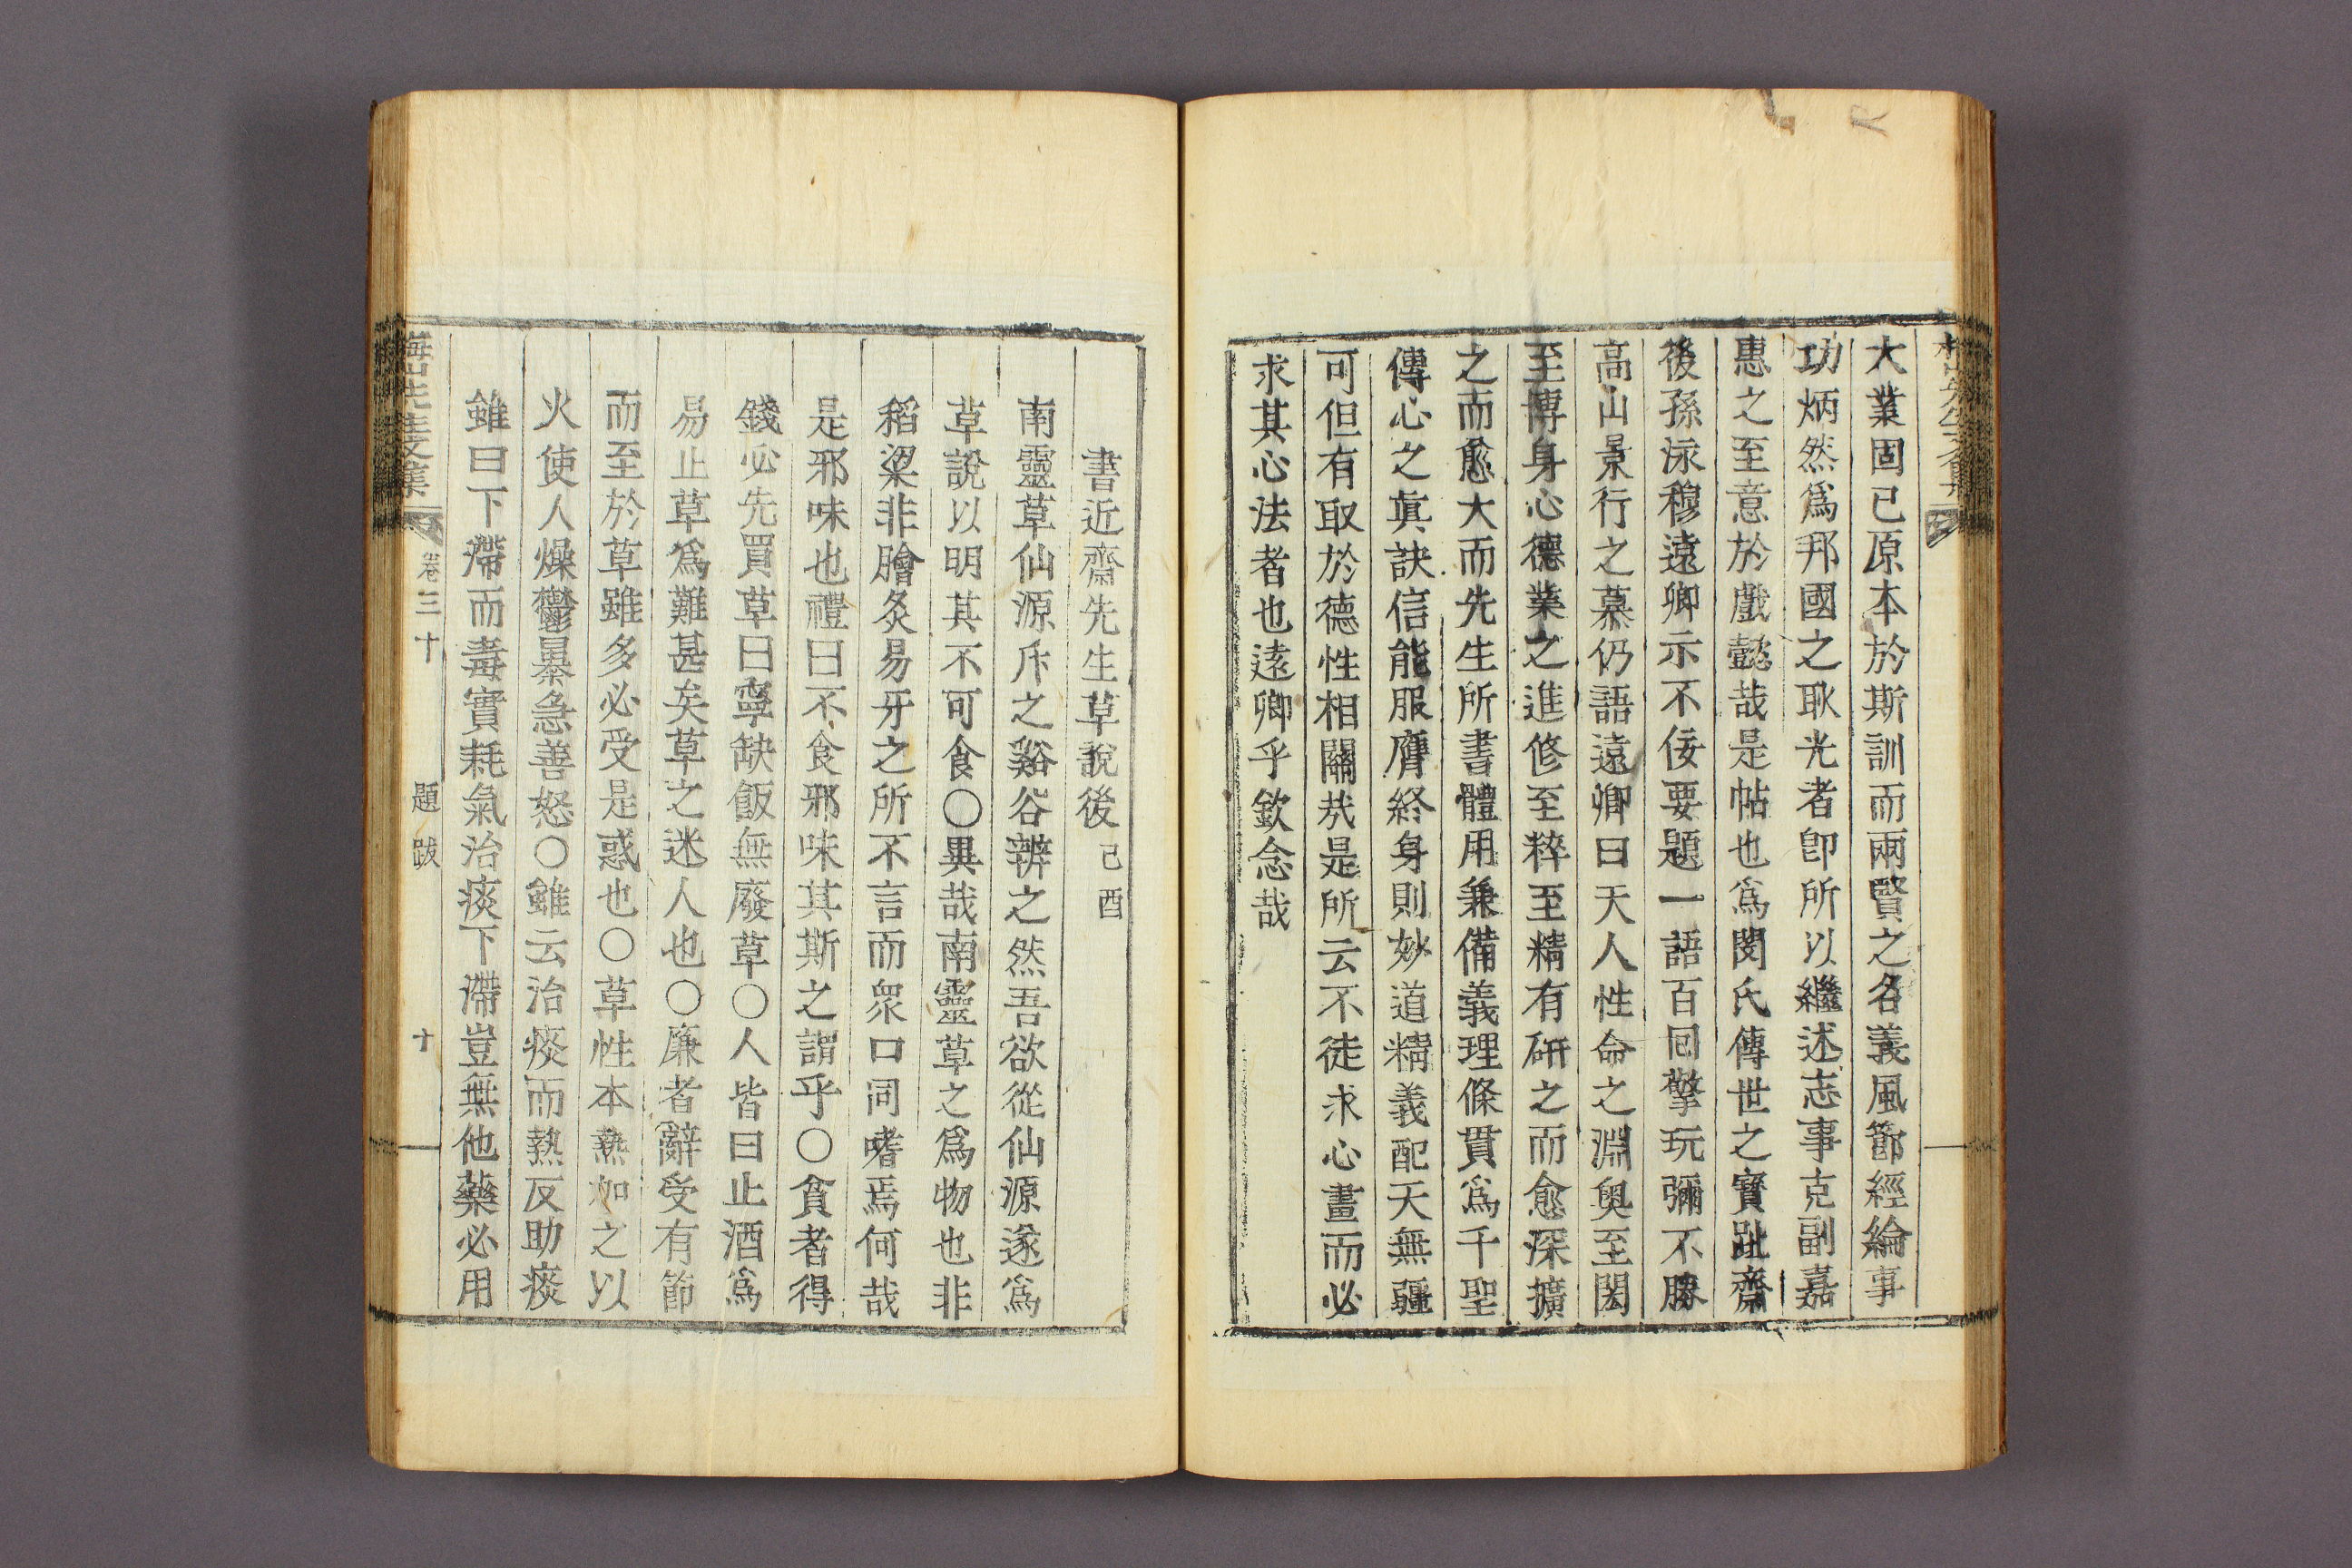 大業固已原本於斯訓而兩賢之名義風節經綸事
功炳然爲邦國之耿光者卽所以繼述志事克副嘉
惠之至意於戲懿哉是帖也爲閔氏傳世之寶趾齋
後孫泳穆遠卿示不佞要題一語百回擎玩彌不勝
高山景行之慕仍語遠卿曰天人性命之淵奧至閎
至博身心德業之進修至粹至精有硏之而愈深擴
之而愈大而先生所書體用兼備義理條貫爲千聖
傳心之眞訣信能服膺終身則妙道精義配天無疆
可但有取於德性相關哉是所云不徒求心畫而必
求其心法者也遠卿乎欽念哉
書近齋先生草說後 己酉
南靈草仙源斥之谿谷辨之然吾欲從仙源遂爲
草說以明其不可食○異哉南靈草之爲物也非
稻粱非膾炙易牙之所不言而衆口同嗜焉何哉
是邪味也禮曰不食邪味其斯之謂乎○貧者得
錢必先買草曰寧缺飯無廢草○人皆曰止酒爲
易止草爲難甚矣草之迷人也○廉者辭受有節
而至於草雖多必受是惑也○草性本熱如之以
火使人燥鬱暴急善怒○雖云治痰而熱反助痰
雖曰下滯而毒實耗氣治痰下滯豈無他藥必用
梅山先生文集
卷三十
題跋
十